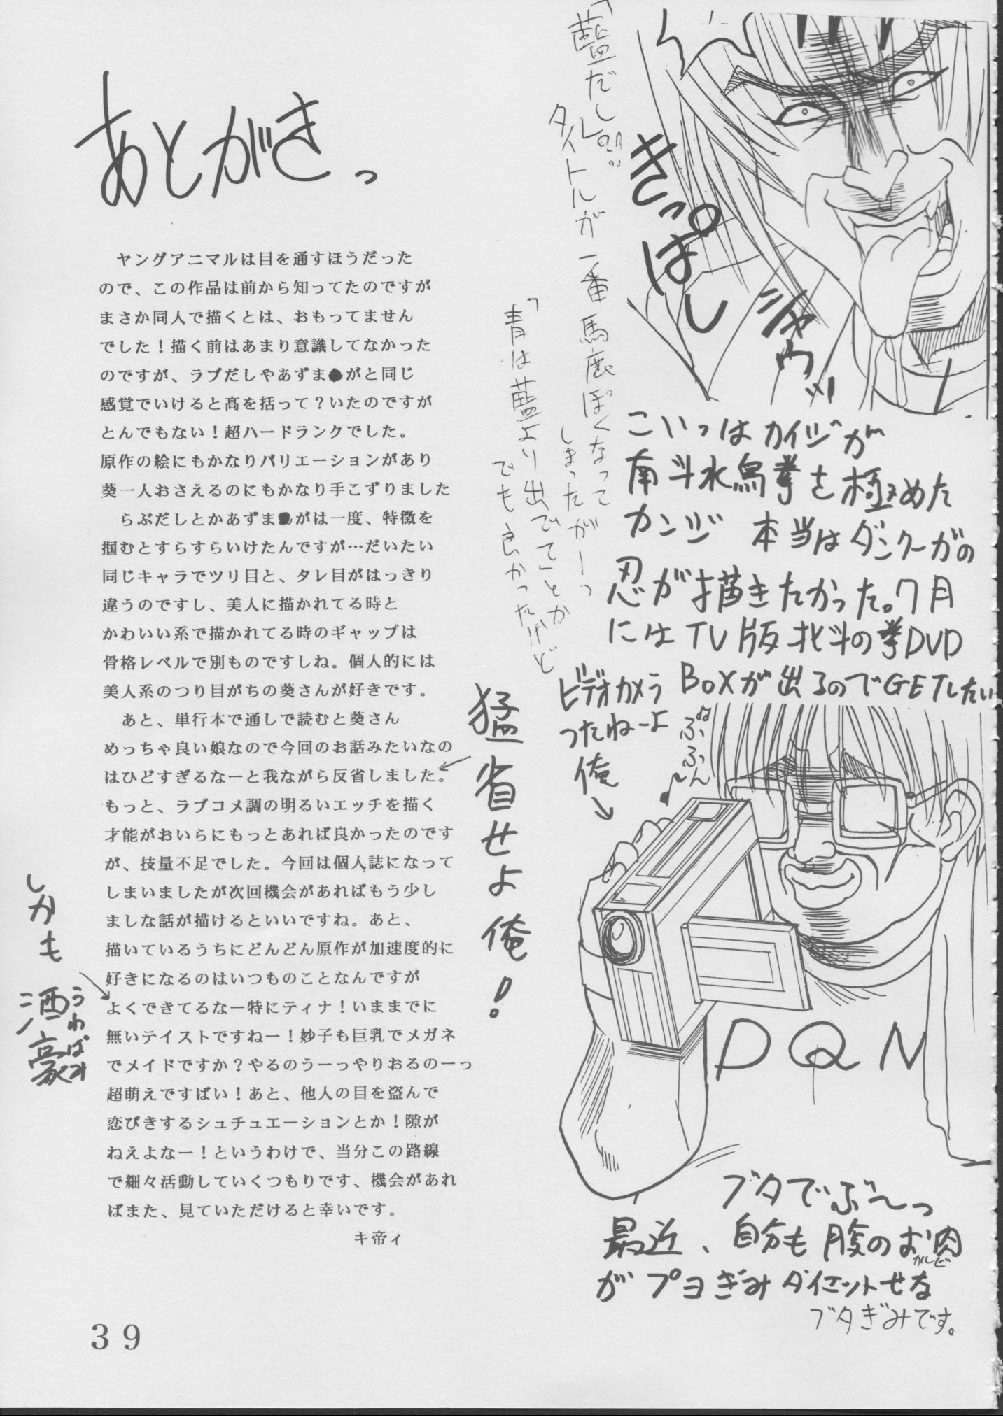 あとがきっ
ヤングアニマルは目を通すほうだった
ので、この作品は前から知ってたのですが
まさか同人で描くとは、おもってません
でした！描く前はあまり意識してなかった
のですが、ラブだしやあずま●がと同じ
感覚でいけると高を括って？いたのですが
とんでもない！超ハードランクでした。
原作の絵にもかなりバリエーションがあり
葵一人おさえるのにもかなり手こずりました
らぶだしとかあずま●がは一度、特徴を
掴むとすらすらいけたんですが…だいたい
同じキャラでツリ目と、タレ目がはっきり
違うのですし、美人に描かれてる時と
かわいい系で描かれてる時のギャップは
骨格レベルで別ものですしね。個人的には
美人系のつり目がちの葵さんが好きです。
あと、単行本で通しで読むと葵さん
めっちゃ良い娘なので今回のお話みたいなの
はひどすぎるなーと我ながら反省しました。
もっと、ラブコメ調の明るいエッチを描く
才能がおいらにもっとあれば良かったのです
が、技量不足でした。今回は個人誌になって
しまいましたが次回機会があればもう少し
ましな話が描けるといいですね。あと、
描いているうちにどんどん原作が加速度的に
好きになるのはいつものことなんですが
よくできてるなー特にティナ！いままでに
無いテイストですねー！妙子も巨乳でメガネ
でメイドですか？やるのうーっやりおるのーっ
超萌えですばい！あと、他人の目を盗んで
恋びきするシュチュエーションとか！隙が
ねえよなー！というわけで、当分この路線
で細々活動していくつもりです、機会があれ
ばまた、見ていただけると幸いです。
キ帝ィ
しかも
酒豪
うわばみ
猛省せよ俺！
「藍だし」
タイトルが一番馬鹿ぽくなって
しまったがーっ
「青は藍より出でてことか
でも良かったけど
きっぱし
シャウッ
こいつはカイジが
南斗水鳥拳を極めた
カンジ 本当はダンクーガの
忍が描きたかった。7月
にはTV版北斗の拳DVD
BOXが出るのでGETしたい
ビデオカメラ
つたねーよ
俺
ぶふふん
DQN
ブタでぶ〜っ
最近、自分も腹のお肉
がプヨぎみダイエットせな
ブタぎみです。
39